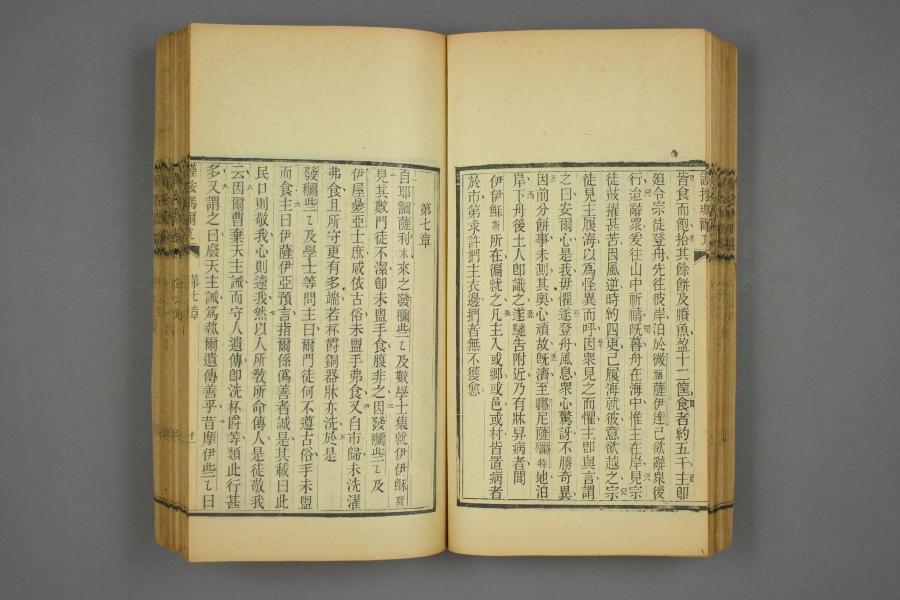 皆食而飽拾其餘餅及賸魚盈十二筐食者約五千主卽
廹令宗徒登舟先往彼岸泊於微薩伊達己欲辭衆後
行迨辭衆爰往山中祈禱旣暮舟在海中惟主在岸見宗
徒鼓櫂甚苦因風逆時約四更己履海就彼意欲越之宗
徒見主履海以爲怪異而呼因衆見之而懼主卽與言謂
之曰安爾心是我毋懼遂登舟風息衆心驚訝不勝奇異
因前分餅事未測其奧心頑故旣濟至尼薩地泊
岸下舟後土人卽識之遂馳告附近乃有牀舁病者聞
伊伊穌斯所在徧就之凡主入或郷或邑或村皆置病者
於市第求許捫主衣邊捫者無不獲愈
第七章
自耶薩利來之發些及數學士集就伊伊穌斯
見其數門徒不潔卽未盥手食腹非之因發些及
伊屋亞士庶咸依古俗未盥手弗食又自市歸未洗濯
弗食且所守更有多端若杯爵銅器牀亦洗於是
發些及學士等問主曰爾門徒何不遵古俗手未盥
而食主曰伊薩伊亞預言指爾係僞善者誠是其載曰此
民口則敬我心則遠我然以人所教所命傳人是徒敬我
云因爾曹棄天主誡而守人遺傳卽洗杯爵等類此行甚
多又謂之曰廢天主誡爲執爾遺傳善乎昔摩伊些曰
第七章